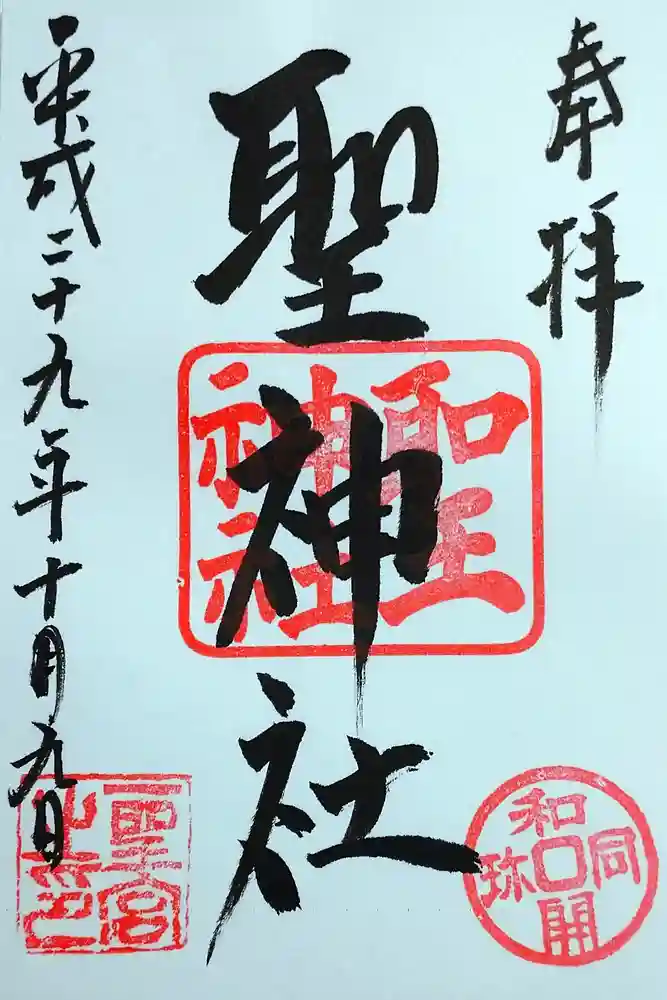 奉拝
聖神社
平成二十九年十月九日
聖神社
和同開珎
聖宮